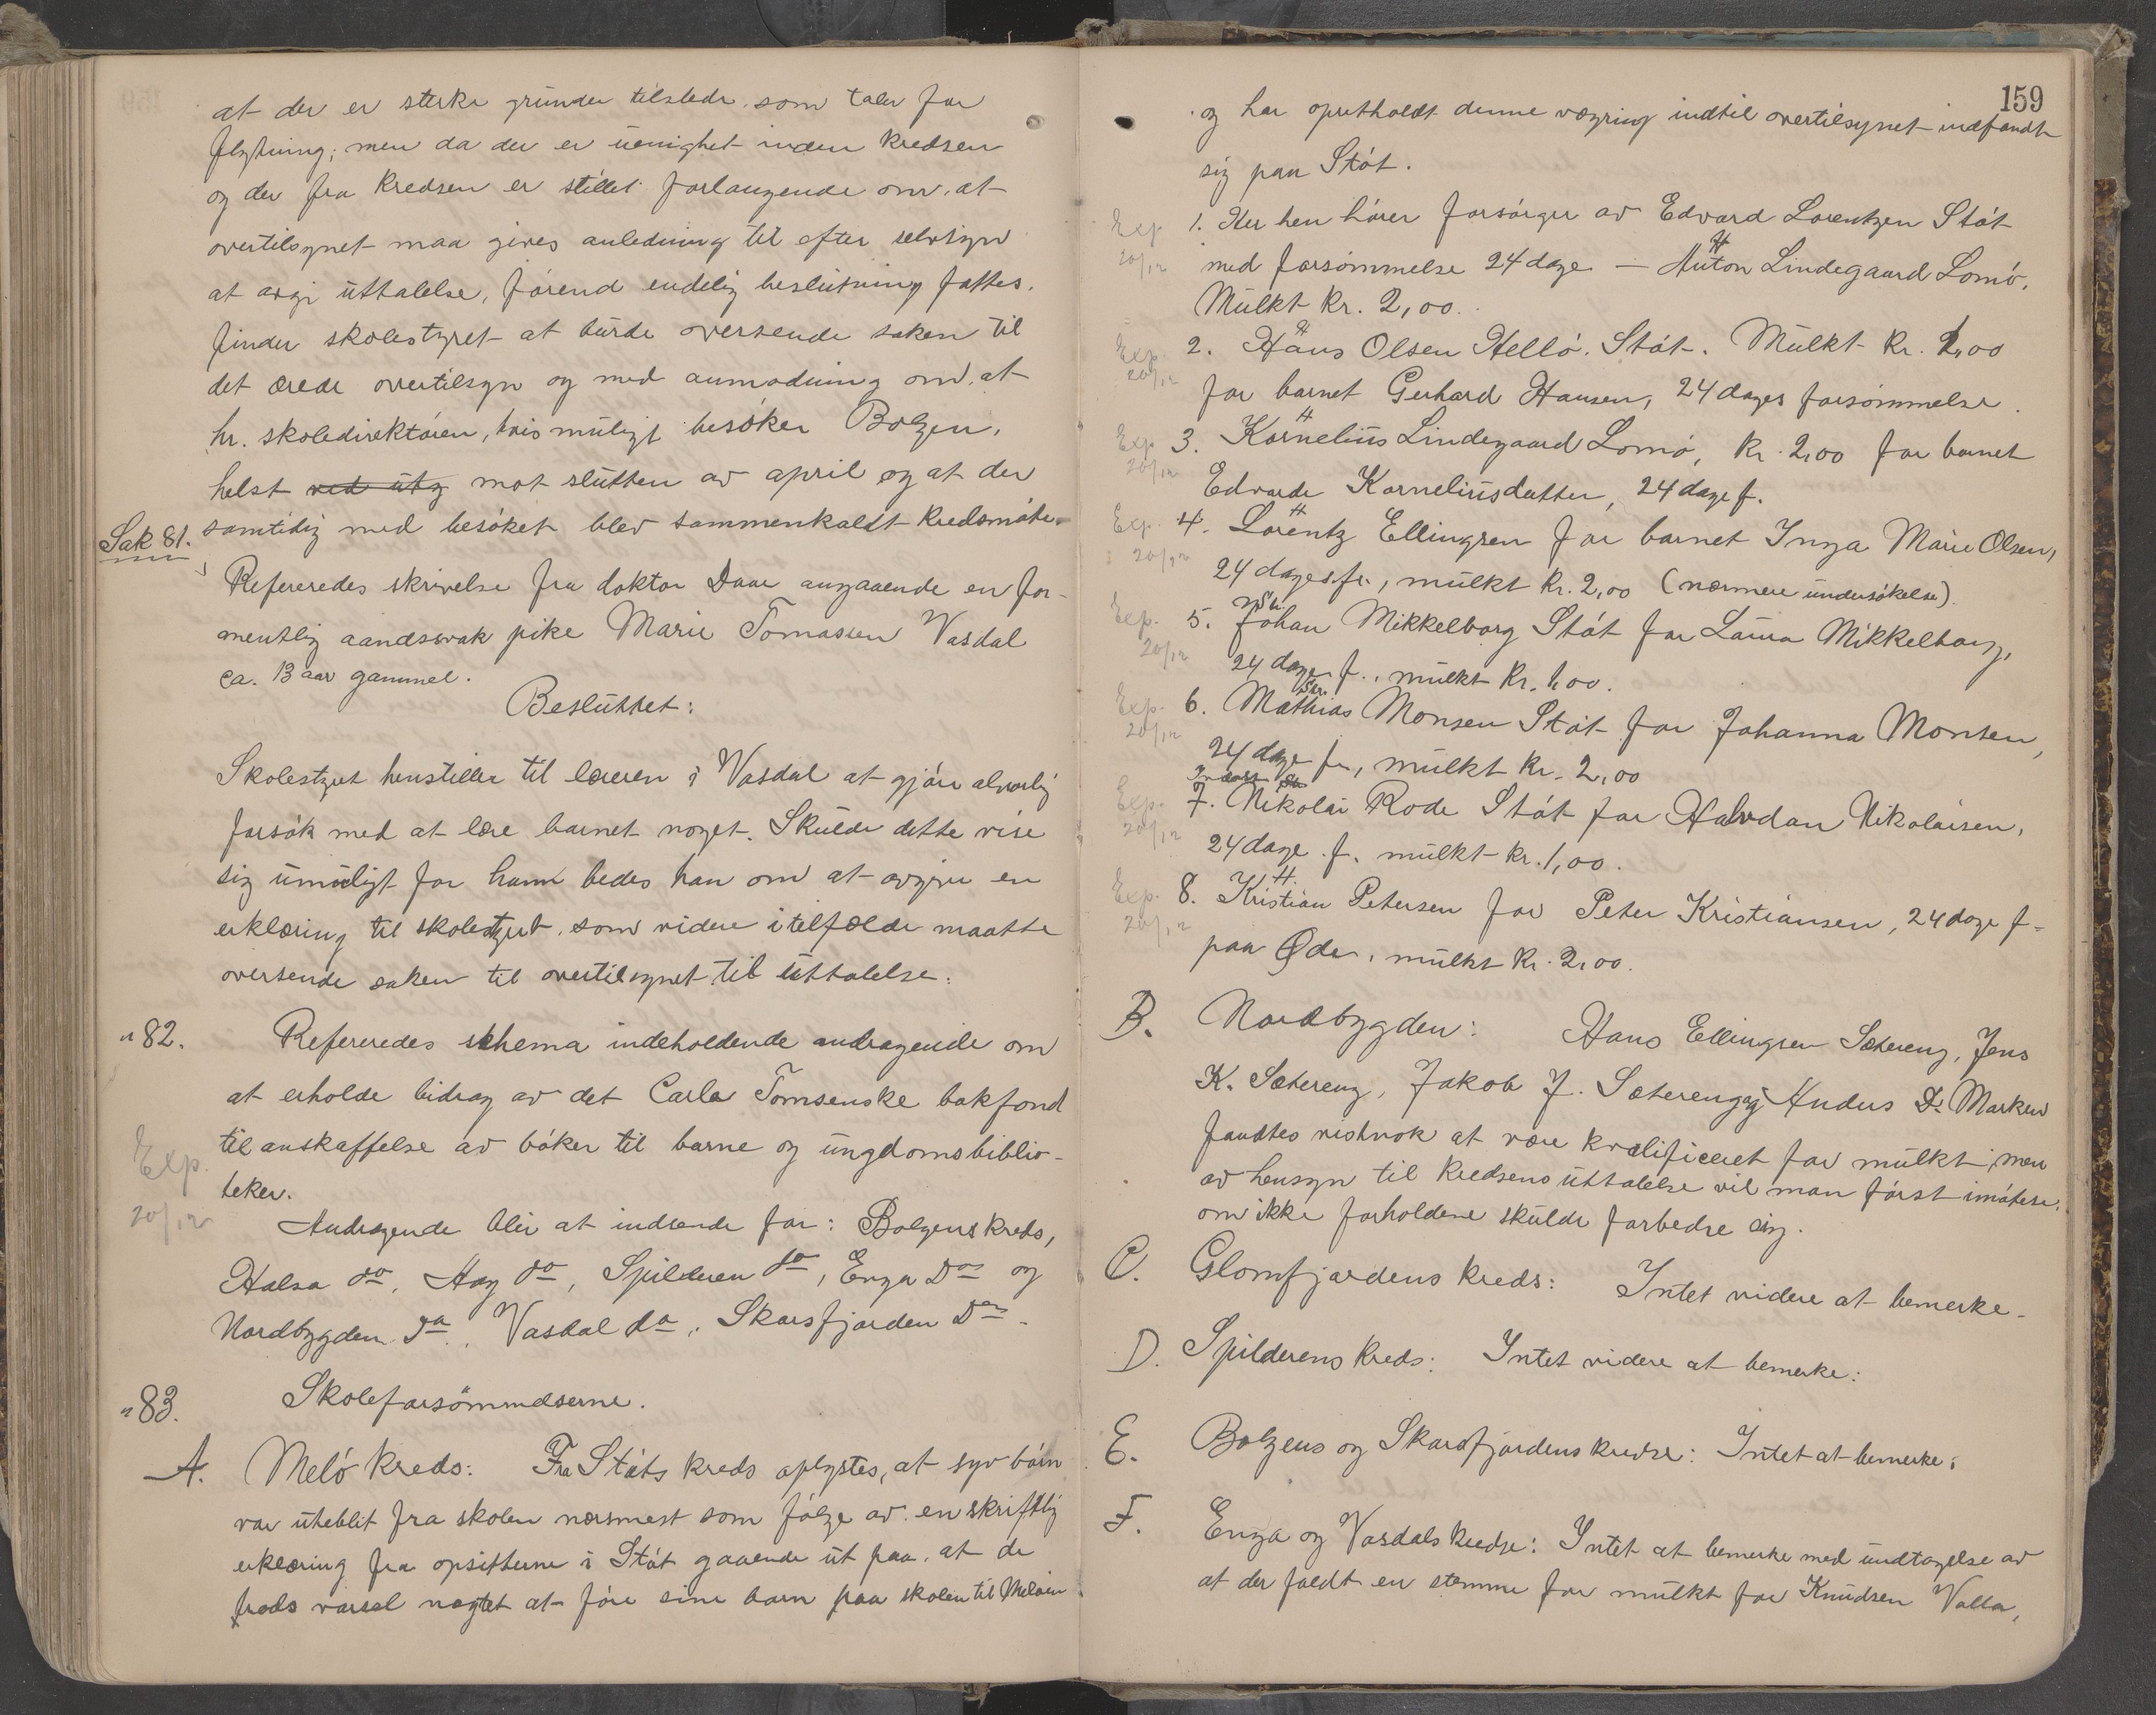 at der er sterke grunder tilstede, som taler for
flytning; men da der er uenighet inden kredsen
og der fra kredsen er stillet forlangende om, at
overtilsynet maa gives anledning til efter selvsyn
at avgi uttalelse, förend endelig beslutning fattes,
finder skolestyret at burde oversende saken til
det ærede overtilsyn og med anmodning om, at
hr. skoledirektören, hvis muligt besöker Bolgen,
helst ved utg mot slutten av april og at der
samtidig med besöket blev sammenkaldt kredsmöte.
Sak 81.
Refereredes skrivelse fra doktor Daae angaaende en for-
mentlig aandssvak pike Marie Tomassen Vasdal
ca. 13 aar gammel.
Besluttet:
Skolestyret henstiller til læreren i Vasdal at gjöre alvorlig
forsök med at lære barnet noget. Skulde dette vise
sig umuligt for ham bedes han om at avgive en
erklæring til skolestyret, som videre i tilfælde maatte
oversende saken til overtilsynet til uttalelse.
" 82.
Refereredes schema indeholdende andragende om
at erholde bidrag av det Carla Tomsenske bokfond
til anskaffelse av böker til barne og ungdomsbiblio-
teker.
Exp.
20/12
Andragende blir at indsende for: Bolgens kreds,
Halsa do, Aag do, Spilderen do, Enga Do og
Nordbygden Do, Vasdal do, Skarsfjorden Do.
" 83.
Skoleforsömmelserne.
A. Melö kreds: Fra Stöts kreds oplystes, at syv börn
var uteblit fra skolen nærmest som fölge av en skriftlig
erklæring fra opsitterne i Stöt gaaende ut paa, at de
trods varsel nægtet at före sine barn paa skolen til Melöen
159
og har opretholdt denne vægring indtil overtilsynet indfandt
sig paa Stöt.
Exp 20/12
1. Her hen hörer forsörger av Edvard Lorentzen Stöt
med forsömmelse 24 dage — Anton Lindegaard Lomö,
Mulkt kr. 2,00.
Exp. 20/12
2. Hans Olsen Hellö, Stöt. Mulkt kr. 1,00
for barnet Gerhard Hansen, 24 dages forsömmelse.
Exp 20/12
3. Kornelius Lindegaard Lomö, kr. 2,00 for barnet
Edvarda Korneliusdatter, 24 dage f.
Exp. 20/12
4. Lorentz Ellingsen for barnet Inga Marie Olsen,
24 dages f., mulkt kr. 2,00 (nærmere undersökelse).
Exp. 20/12
5. Johan Mikkelborg Stöt for Laura Mikkelborg,
24 dage f., mulkt kr. 1,00.
Exp. 20/12
6. Mathias Monsen Stöt for Johanna Monsen,
24 dage f., mulkt kr. 2,00
Exp. 20/12
7. Nikolai Rode Stöt for Halvdan Nikolaisen,
24 dage f. mulkt kr. 1,00.
Exp. 20/12
8. Kristian Petersen for Peter Kristiansen, 24 dage f.
paa Øde, mulkt kr. 2,00.
B. Nordbygden: Hans Ellingsen Sætereng, Jens
K. Sætereng, Jakob J. Sætereng og Anders D. Marken
fandtes vistnok at være kvalificeret for mulkt, men
av hensyn til kredsens uttalelse vil man först imötese,
om ikke forholdene skulde forbedre sig.
C. Glomfjordens kreds: Intet videre at bemerke.
D. Spilderens kreds: Intet videre at bemerke:
E. Bolgens og Skarsfjordens kredse: Intet at bemerke;
F. Enga og Vasdals kredse: Intet at bemerke med undtagelse av
at der faldt en stemme for mulkt for Knudsen Valla,